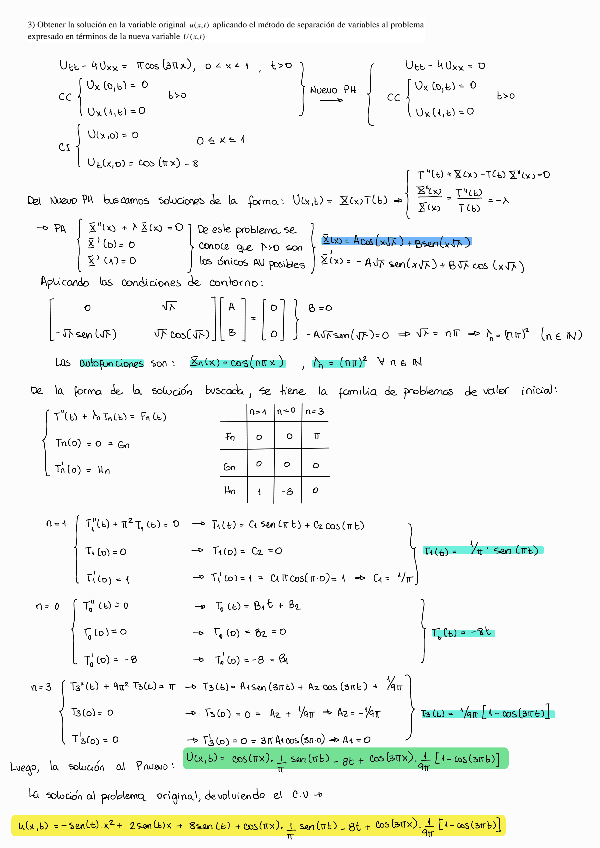 3) Obtener la solución en la variable original u(x,t) aplicando el método de separación de variables al problema
expresado en términos de la nueva variable U(x,t)
Utt - 4Uxx = πcos(3πx), 0 < x < 1 , t>0
CC { Ux(0,t) = 0
Ux(1,t) = 0 t>0
CI { U(x,0) = 0
Ut(x,0) = cos(πx) - 8 0 ≤ x ≤ 1
Nuevo PH →
Utt - 4Uxx = 0
CC { Ux(0,t) = 0
Ux(1,t) = 0 t>0
Del Nuevo PH buscamos soluciones de la forma: U(x,t) = X(x)T(t) ⇒ { T''(t) * X(x) - T(t) X''(x) = 0
X''(x)/X(x) = T''(t)/T(t) = -λ
→ PA { X''(x) + λ X(x) = 0
X'(0) = 0
X'(1) = 0
De este problema se
conoce que λ>0 son
los únicos AV posibles
X(x) = Acos(x√λ) + Bsen(x√λ)
X'(x) = -A√λ sen(x√λ) + B√λ cos(x√λ)
Aplicando las condiciones de contorno:
[ 0 √λ ] [ A ] = [ 0 ] } B = 0
[ -√λ sen(√λ) √λ cos(√λ) ] [ B ] [ 0 ] -A√λ sen(√λ) = 0 ⇒ √λ = nπ ⇒ λn = (nπ)² (n ∈ ℕ)
Las autofunciones son: Xn(x) = cos(nπx) , λn = (nπ)² ∀ n ∈ ℕ
De la forma de la solución buscada, se tiene la familia de problemas de valor inicial:
{ T''(t) + λn Tn(t) = Fn(t)
Tn(0) = 0 = Gn
T'n(0) = Hn
n=1 n=0 n=3
Fn 0 0 π
Gn 0 0 0
Hn 1 -8 0
n=1 { T1''(t) + π² T1(t) = 0 → T1(t) = C1 sen(πt) + C2 cos(πt)
T1(0) = 0 → T1(0) = C2 = 0
T1'(0) = 1 → T1'(0) = 1 = C1 π cos(π·0) = 1 → C1 = 1/π
T1(t) = 1/π · sen(πt)
n=0 { T0''(t) = 0 → T0(t) = B1t + B2
T0(0) = 0 → T0(0) = B2 = 0
T0'(0) = -8 → T0'(0) = -8 = B1
T0(t) = -8t
n=3 { T3''(t) + 9π² T3(t) = π → T3(t) = A1sen(3πt) + A2 cos(3πt) + 1/9π
T3(0) = 0 → T3(0) = 0 = A2 + 1/9π → A2 = -1/9π
T'3(0) = 0 → T'3(0) = 0 = 3πA1cos(3π·0) → A1 = 0
T3(t) = 1/9π [1 - cos(3πt)]
Luego, la solución al Pnuevo: U(x,t) = cos(πx) · 1/π sen(πt) - 8t + cos(3πx) · 1/9π [1 - cos(3πt)]
La solución al problema original, devolviendo el C.V →
u(x,t) = -sen(t) x² + 2sen(t)x + 8sen(t) + cos(πx) · 1/π sen(πt) - 8t + cos(3πx) · 1/9π [1 - cos(3πt)]